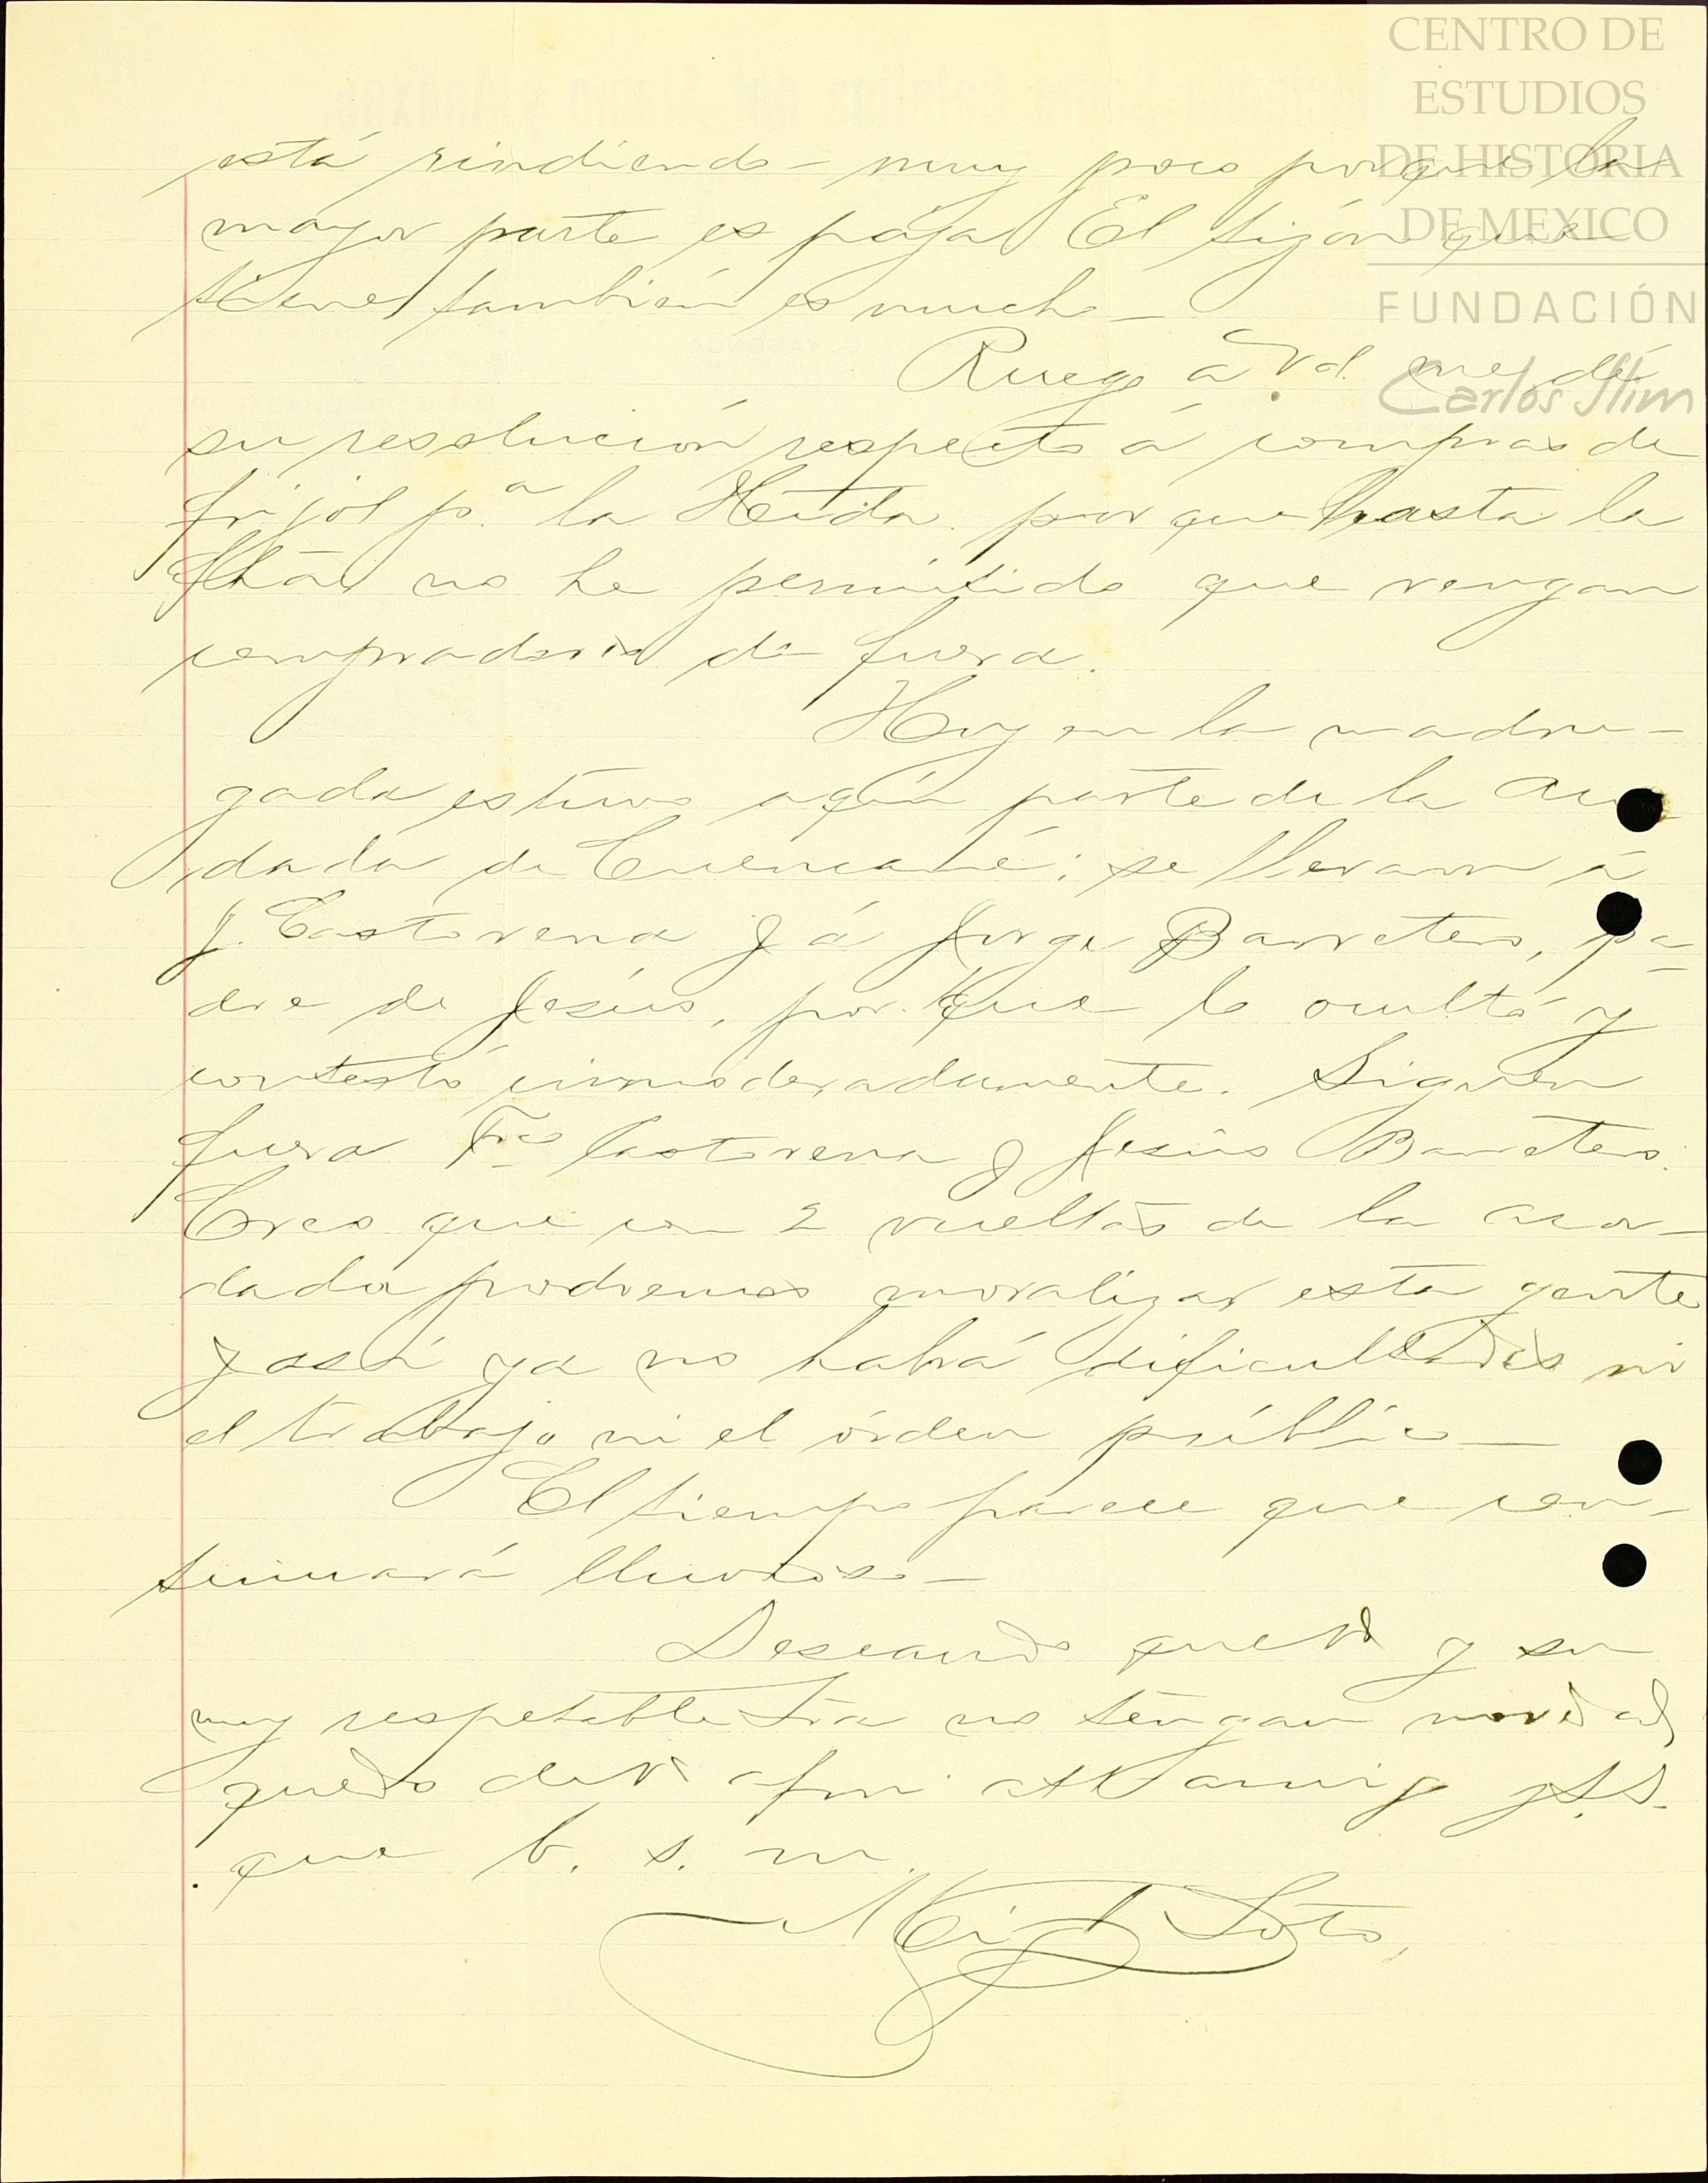 CENTRO DE
ESTUDIOS
DE HISTORIA
DE MEXICO
FUNDACIÓN
Carlos Slim
está rindiendo muy poco porque la
mayor parte es paja El tizón que
tiene también es mucho—
Ruego a Vd. me dé
su resolución respecto á compras de
frijol pa. la Hcida. porque hasta la
fha no he permitido que vengan
compradores de fuera.
Hoy en la madru-
gada estuvo aquí parte de la acor
dada de Cuencamé; se llevaron á
J. Castorena y á Jorge Barretero, pa-
dre de Jesús, por que lo ocultó y
contestó inmoderadamente. Siguen
fuera Fco Castorena y Jesús Barretero.
Creo que con 2 vueltas de la acor-
dada podremos moralizar esta gente
y así ya no habrá dificultades ni
el trabajo ni el órden público—
El tiempo parece que con-
tinuará lluvioso—
Deseando que Vd y su
muy respetable Sra no tengan novedad
quedo de Vd afmo. att amigo y S.S.
que b. s. m.
Migl Soto,